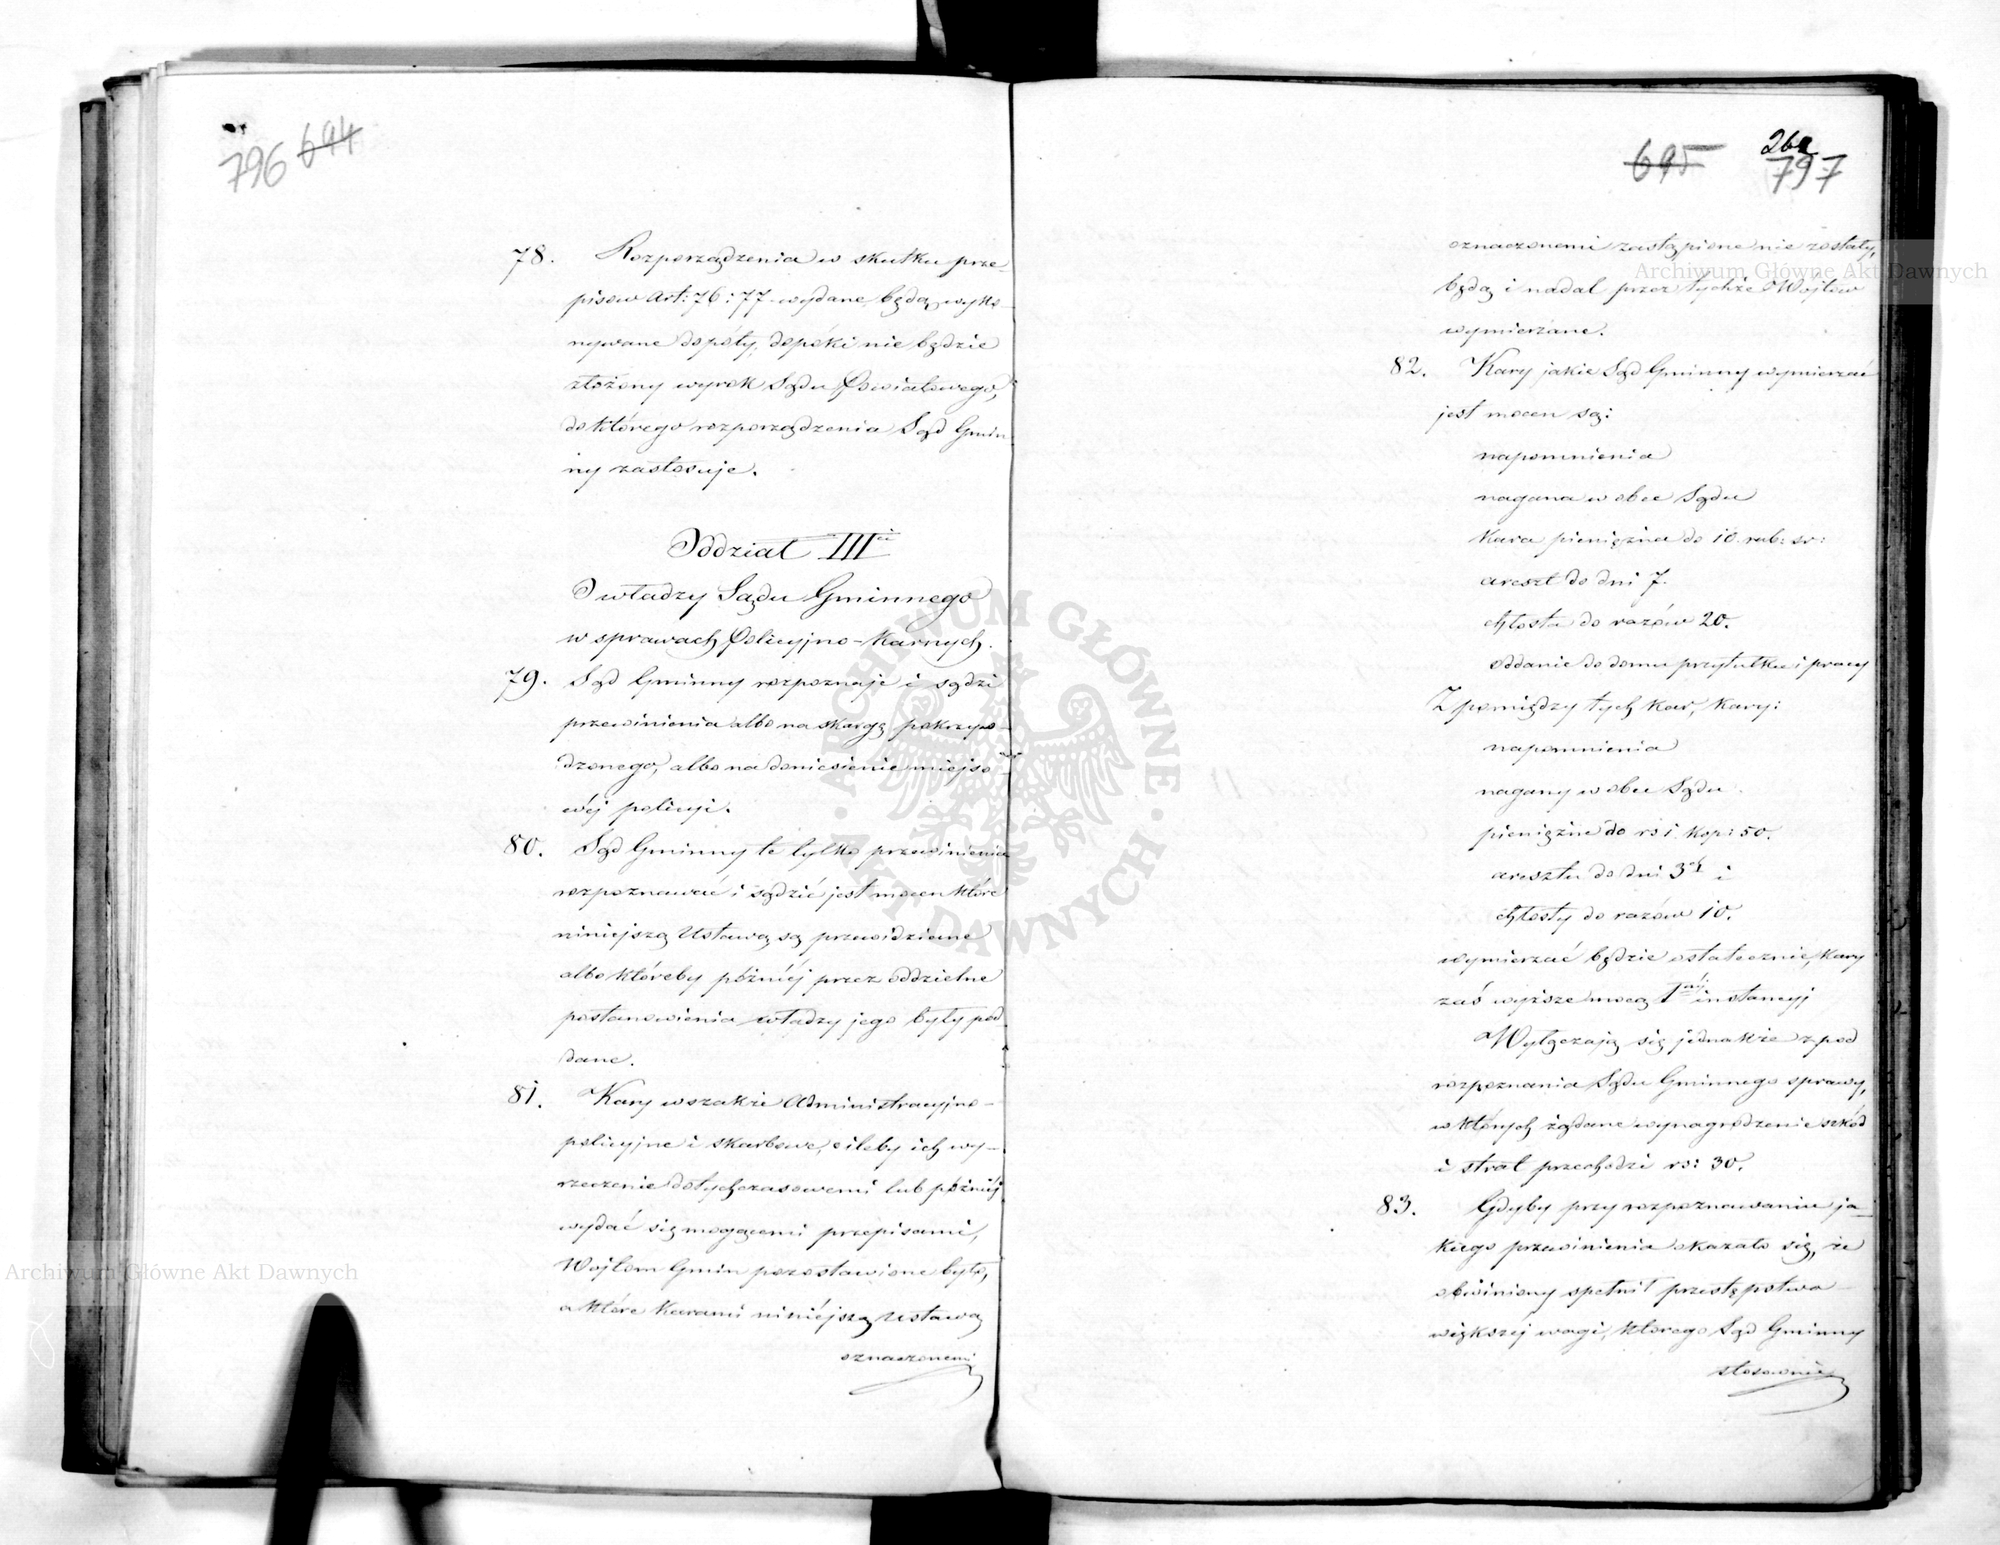 796 694
78. Rozporządzenia w skutku prze-
pisow Art: 76 i 77. wydane, będą wyko-
nywane dopóty, dopóki nie będzie
złożony wyrok Sądu Powiatowego,
do którego rozporządzenia Sąd Gmin
ny zastosuje.
Oddział III
O władzy Sądu Gminnego
w sprawach Policyjno-Karnych.
79. Sąd Gminny rozpoznaje i sądzi
przewinienia albo na skargę pokrzyw-
dzonego, albo na doniesienie miejsco-
wéj policyi.
80. Sąd Gminny te tylko przewinienia
rozpoznawać i sądzić jest mocen które
niniejszą Ustawą są przewidziane
albo któreby późniéj przez oddzielne
postanowienia władzy jego były pod
dane.
81. Kary wszakże Administracyjno-
policyjne i skarbowe, o ileby ich wy-
rzeczenie dotychczasowemi lub późniéj
wydać się mogącemi przepisami,
Wójtom Gmin pozostawione było,
a które karami niniéjszą Ustawą
oznaczonemi
695 262
797
oznaczonemi zastąpione nie zostały,
będą i nadal przez tychże Wójtów
wymierzane.
82. Kary jakie Sąd Gminny wymierzać
jest mocen są:
napomnienia
nagana w obec Sądu
Kara pieniężna do 10. rub: sr:
areszt do dni 7.
chłosta do razów 20.
oddanie do domu przytułku i pracy
Z pomiędzy tych kar, kary:
napomnienia
nagany w obec Sądu
pieniężne do rs 1. kop: 50.
aresztu do dni 3ch i
chłosty do razów 10.
wymierzać będzie ostatecznie, kary
zaś wyższe mocą 1éj instancyi
Wyłączają się jednakże z pod
rozpoznania Sądu Gminnego sprawy,
w których żądane wynagrodzenie szkód
i strat przechodzi rs: 30.
83. Gdyby przy rozpoznawaniu ja-
kiego przewinienia okazało się, że
obwiniony spełnił przestępstwo
większéj wagi, którego Sąd Gminny
stosownie
Archiwum Główne Akt Dawnych
Archiwum Główne Akt Dawnych
ARCHIWUM GŁÓWNE · AKT DAWNYCH ·